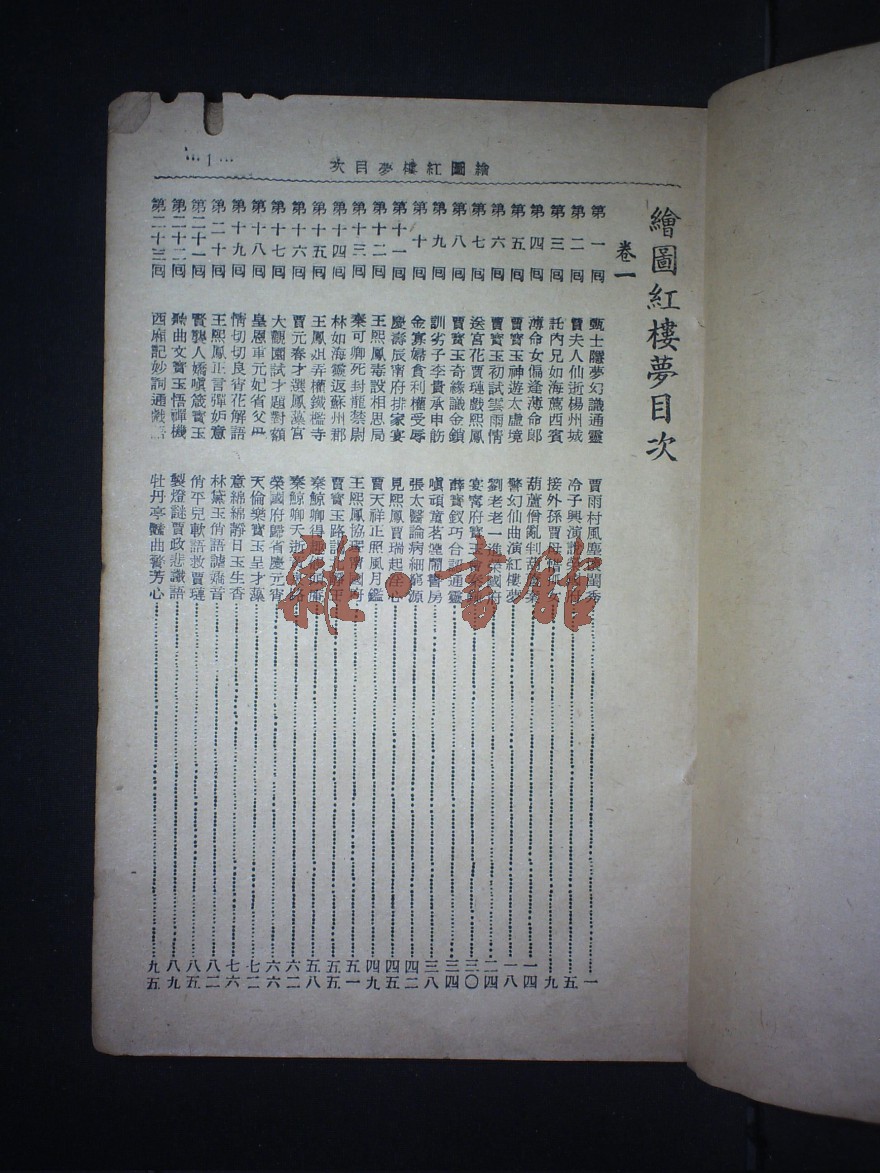 繪圖紅樓夢目次
…1…
繪圖紅樓夢目次
卷一
第一囘 甄士隱夢幻識通靈 賈雨村風塵懷閨秀 一
第二囘 賈夫人仙逝楊州城 冷子興演說榮府 五
第三囘 託內兄如海薦西賓 接外孫賈母惜孤女 九
第四囘 薄命女偏逢薄命郎 葫蘆僧亂判葫蘆案 一四
第五囘 賈寶玉神遊太虛境 警幻仙曲演紅樓夢 一八
第六囘 賈寶玉初試雲雨情 劉老老一進榮國府 二四
第七囘 送宮花賈璉戲熙鳳 宴甯府寶玉會秦鍾 三〇
第八囘 賈寶玉奇緣識金鎖 薛寶釵巧合認通靈 三四
第九囘 訓劣子李貴承申飭 嗔頑童茗煙鬧書房 三八
第十囘 金寡婦貪利權受辱 張太醫論病細窮源 四二
第十一囘 慶壽辰甯府排家宴 見熙鳳賈瑞起淫心 四五
第十二囘 王熙鳳毒設相思局 賈天祥正照風月鑑 四九
第十三囘 秦可卿死封龍禁尉 王熙鳳協理甯國府 五一
第十四囘 林如海靈返蘇州郡 賈寶玉路謁 五五
第十五囘 王鳳姐弄權鐵檻寺 秦鯨卿得趣 五八
第十六囘 賈元春才選鳳藻宮 秦鯨卿夭逝黃泉路 六二
第十七囘 大觀園試才題對額 榮國府歸省慶元宵 六六
第十八囘 皇恩重元妃省父母 天倫樂寶玉呈才藻 七二
第十九囘 情切切良宵花解語 意綿綿靜日玉生香 七六
第二十囘 王熙鳳正言彈妒意 林黛玉俏語謔嬌音 八二
第二十一囘 賢襲人嬌嗔箴寶玉 俏平兒軟語救賈璉 八五
第二十二囘 聽曲文寶玉悟禪機 製燈謎賈政悲讖語 八九
第二十三囘 西廂記妙詞通戲語 牡丹亭艷曲警芳心 九五
雜·書館